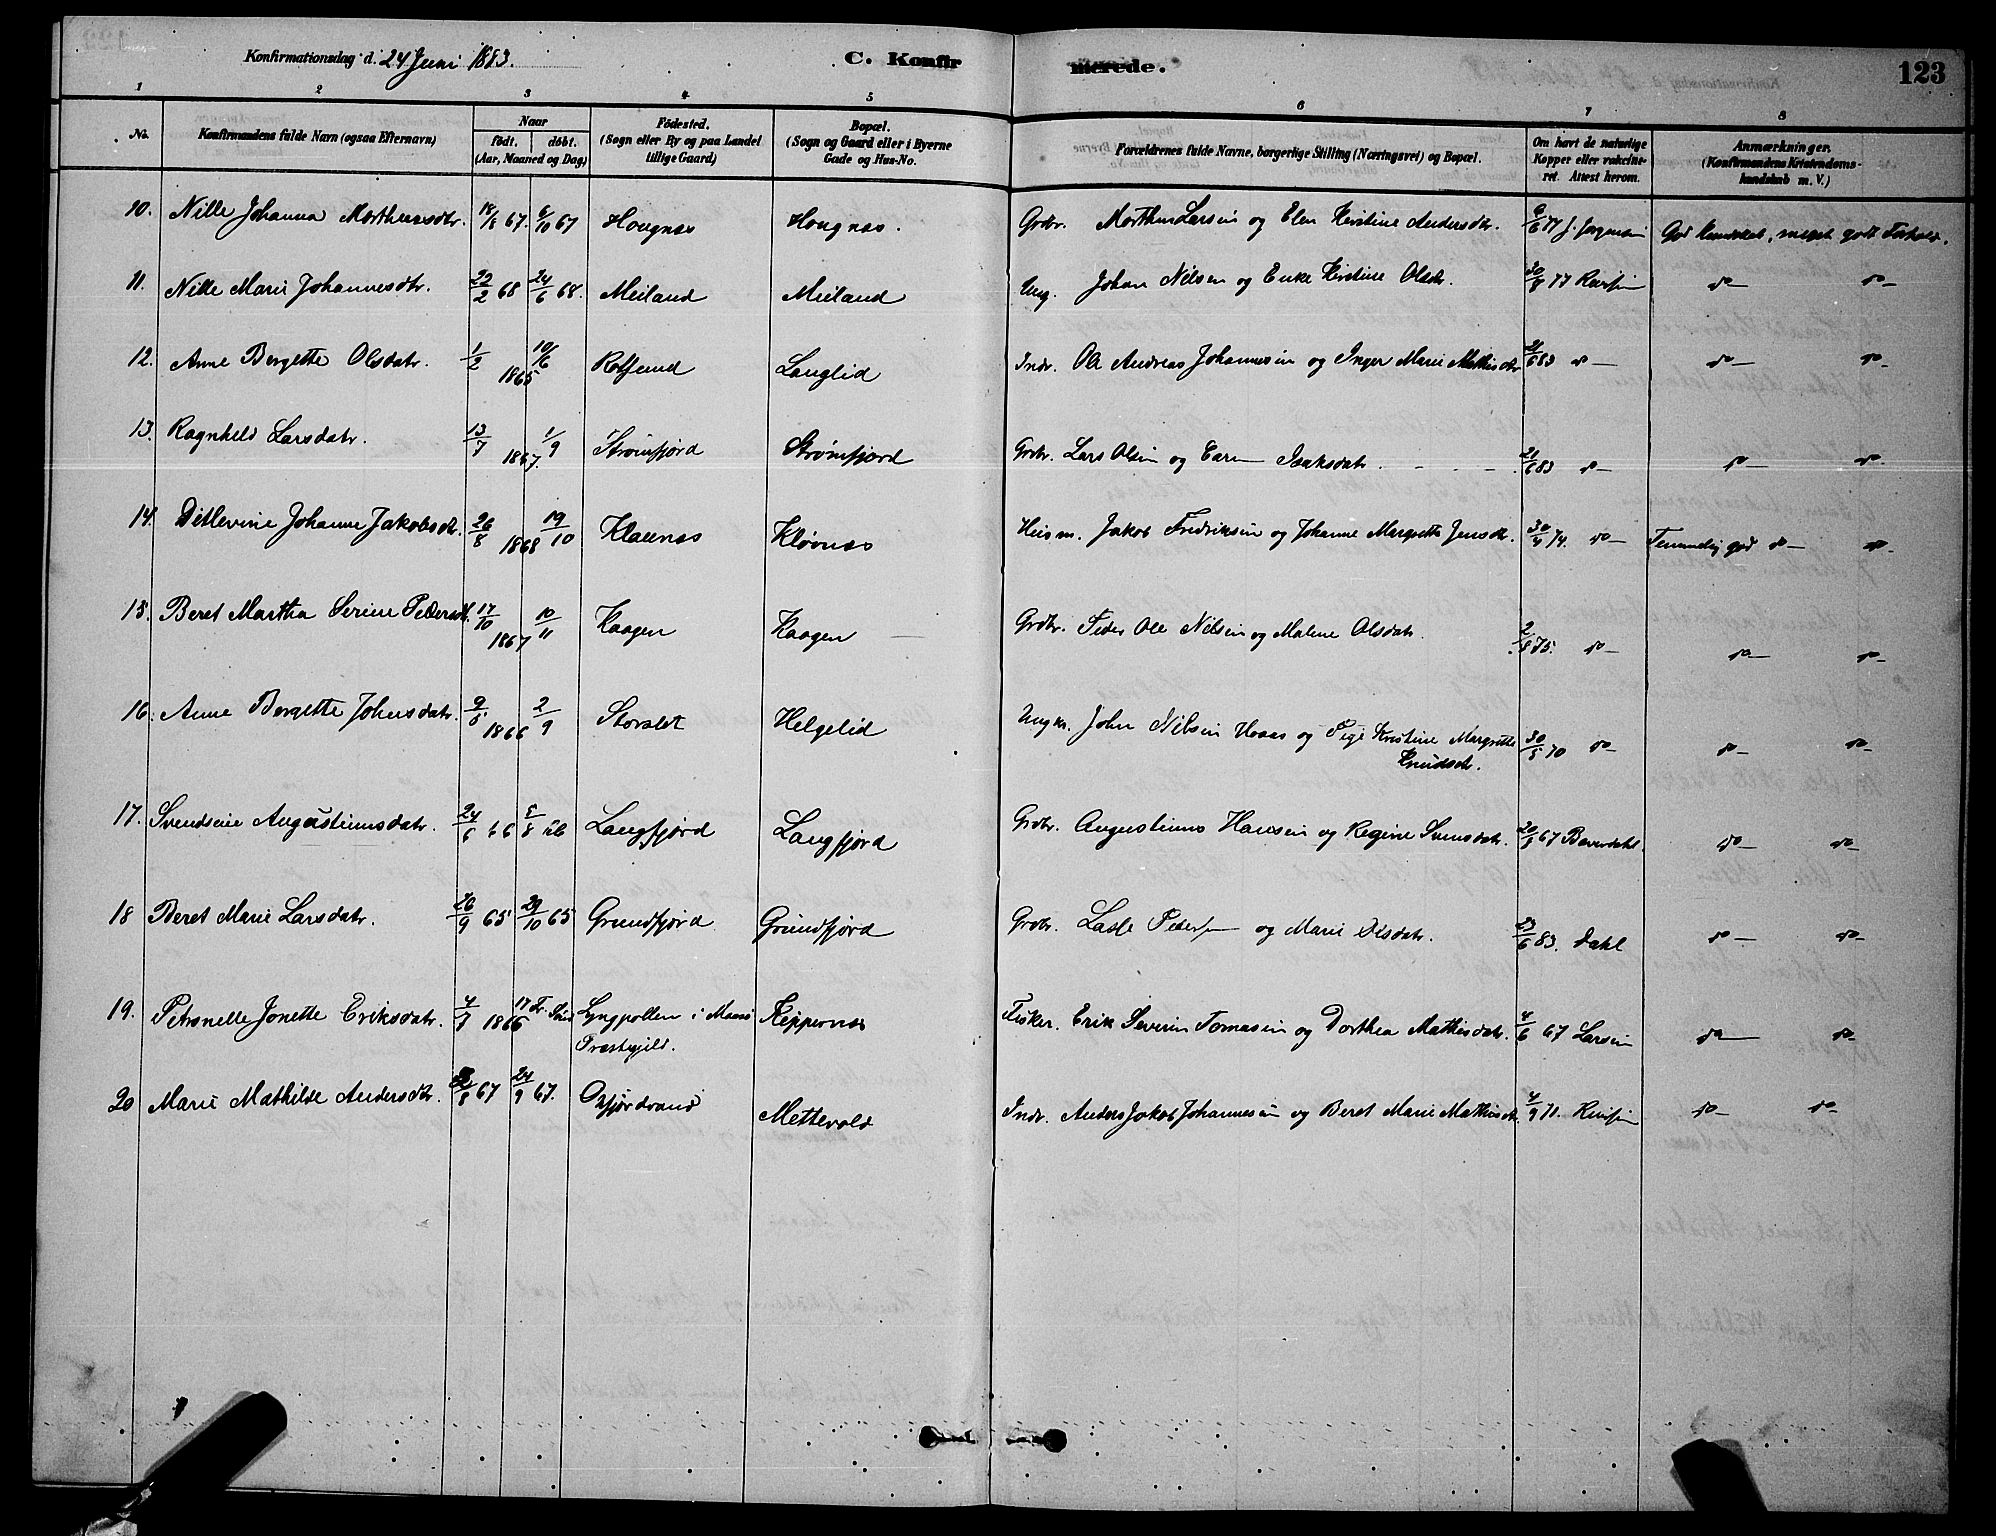 Konfirmationsdag d. 24 Juni 1883.
C. Konfirmerede.
123
1 2 3 4 5 6 7 8
No.
Konfirmandens fulde Navn (ogsaa Efternavn)
Naar
født. døbt.
(Aar, Maaned og Dag)
Fødested.
(Sogn eller By og paa Landet
tillige Gaard)
Bopæl.
(Sogn og Gaard eller i Byerne
Gade og Hus-No.
Forældrenes fulde Navne, borgerlige Stilling (Næringsvei) og Bopæl.
Om havt de naturlige
Kopper eller vakcine-
ret. Attest herom.
Anmærkninger.
(Konfirmandens Kristendoms-
kundskab m. V.)
10. Nille Johanna Morthensdtr. 18/8 67. 6/10 67 Hougnæs Hougnæs. Grdbr. Morthen Larsen og Elen Kirstine Andersdtr. J. Jørgensen God Kundskab, meget godt Forhold.
11. Nille Marie Johannesdtr. 22/2 68 24/6 68. Meiland Meiland Ung. Johan Nilsen og Enke Kirstine Olsdtr. 77 do do
12. Anne Bergette Olsdatr. 1/2 10/6 1865 Langlid Indr. Ole Andreas Johannesen og Inger Marie Mathisdtr 21/6 83 do do do
13. Ragnhild Larsdatr. 13/7 1/9 1867. Strømfjord Strømfjord Grdbr. Lars Olsen og Isaksdatr. 21/6 83 do do do
14. Ditlevine Johanne Jakobsdtr. 26/8 19/10 1868 Kløvnæs Husm. Jakob Fredriksen og Johanne Margrethe Jensdtr. 74. do Temmelig god do do
15. Beret Martha Serine Pedersdtr. 17/10 10/11 1867 Kaagen Kaagen Grdbr. Peder Ole Nilsen og Malene Olsdatr. 2/8 75. do do do
16. Anne Bergette Johnsdatr. 2/9 1866 Storslet Helgelid Ungkr. John Nilsen og Pige Kristine Margrethe
Knudsdtr. 70 do do do
17. Augustinusdatr. 24/6 66 5/8 66 Langfjord Langfjord Grdbr. Augustinus Hansen og Regine Svensdatr. 67 do do
18 Beret Marie Larsdatr. 26/9 65 29/10 65 Grundfjord Grundfjord Grdbr. Lasse og Marie Olsdatr. 23/6 83. Dahl do do
19. Petronelle Jonette Eriksdatr. 4/7 1866 17 Lyngpollen i
Præstegjeld. Keppernæs Fisker. Erik Severin Tomasen og Dorthea Mathisdatr. 4/6 67 Larsen do do
20 Marie Mathilde Andersdtr. 67 24/9 67. Oxfjordvand Mettevold Indr. Anders Jakob Johannesen og Beret Marie Mathisdtr. 4/9 71. do do